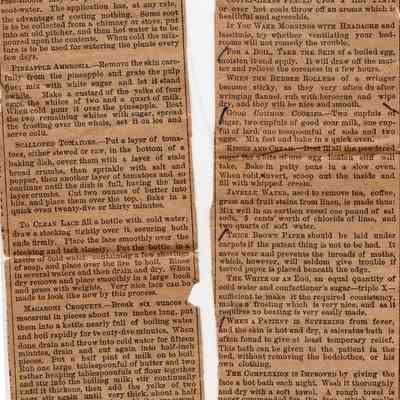 soot-water. The application has, at any rate,
the advantage of costing nothing. Some soot
is to be collected from a chimney or stove, put
into an old pitcher, and then hot water to be
poured upon the contents. When cold the mix-
ture is to be used for watering the plants every
few days.
PINEAPPLE AMBROSIA.—Remove the skin care-
fully from the pineapple and grate the pulp
fine; mix with white sugar and let it stand
awhile. Make a custard of the yolks of four
eggs, the whites of two and a quart of milk.
When cold pour it over the pineapple. Beat
the two remaining whites with sugar, spread
the frosting over the whole, set it on ice and
serve cold.
SCALLOPED TOMATOES.—Put a layer of toma-
toes, either stewed or raw, in the bottom of a
baking dish, cover them with a layer of stale
bread crumbs, then sprinkle with salt and
pepper, then another layer of tomatoes and so
continue until the dish is full, having the last
layer crumbs. Cut two ounces of butter into
bits, and place them over the top. Bake in a
quick oven twenty-five or thirty minutes.
TO CLEAN LACE fill a bottle with cold water,
draw a stocking tightly over it, securing both
ends firmly. Place the lace smoothly over the
stocking and tack closely. Put the bottle in a
kettle of cold water containing a few shavings
of soap, and place over the fire to boil. Rinse
in several waters and then drain and dry. When
dry remove and place smoothly in a large book
and press with weights. Very nice lace can be
made to look like new by this process.
MACARONI CROQUETS.—Break six ounces of
macaroni in pieces about two inches long, put
them into a kettle nearly full of boiling water
and boil rapidly for twenty-five minutes. When
done drain and throw into cold water for fifteen
minutes, drain and cut again into half-inch
pieces. Put a half pint of milk on to boil.
Rub one large tablespoonful of butter and two
rather heaping tablespoonfuls of flour together
and stir into the boiling milk; stir continually
until it thickens, then add the yelks of two
stir again until very thick, about a half
or over hot coals throw off an aroma which is
healthful and agreeable.
IF YOU WAKE MORNINGS WITH HEADACHE and
lassitude, try whether ventilating your bed-
rooms will not remedy the trouble.
FOR A BOIL, TAKE THE SKIN of a boiled egg,
moisten it and apply. It will draw off the mat-
ter and relieve the soreness in a few hours.
WHEN THE RUBBER ROLLERS of a wringer
become sticky, as they very often do after
wringing flannel, rub with kerosene and wipe
dry, and they will be nice and smooth.
GOOD COTTAGE COOKIES.—Two cupfuls of
sugar, two cupfuls of good sour milk, one cup-
ful of lard, one teaspoonful of soda and two
eggs. Mix soft and bake in a quick oven.
KISSES AND CREAM.—Beat
sugar the whites of one egg
take. Bake in patty pans in a slow oven.
When cold invert, scoop out the inside and
fill with whipped cream.
JAVELLE WATER, used to remove tea, coffee,
grass and fruit stains from linen, is made thus:
Mix well in an earthen vessel one pound of sal
soda, 5 cents' worth of chloride of lime, and
two quarts of soft water.
THICK BROWN PAPER should be laid under
carpets if the patent thing is not to be had. It
saves wear and prevents the inroads of moths,
which, however, will seldom give trouble if
tarred paper is placed beneath the edge.
THE WHITE OF AN EGG, an equal quantity of
cold water and confectioner's sugar—triple X—
sufficient to make it the required consistency,
makes a frosting which is very nice, and as it
requires no beating is very easily made.
WHEN A PATIENT IS SUFFERING from fever,
and the skin is hot and dry, a saleratus bath is
often found to give at least temporary relief.
This bath can be given to the patient in the
bed, without removing the bedclothes, or his
own clothing.
THE COMPLEXION IS IMPROVED by giving the
face a hot bath each night. Wash it thoroughly
and dry with a soft towel. A rough towel is